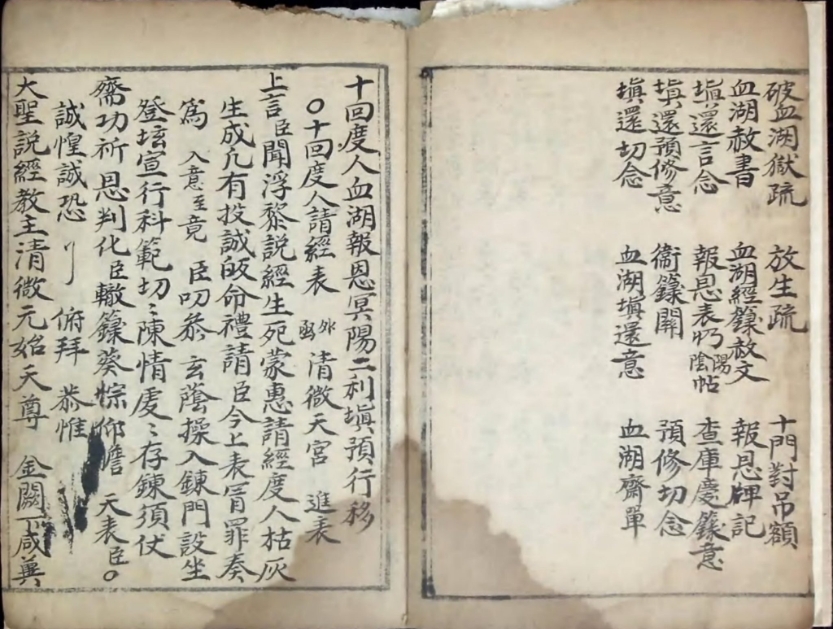 破血湖獄疏 放生疏 十門對吊額
血湖赦書 血湖經籙赦文 報恩牌記
塡還言念 報恩表 陽陰帖 查庫慶籙意
塡還預修意 衙籙開 預修切念
塡還切念 血湖塡還意 血湖齋單
十回度人血湖報恩冥陽二利塡預行移
○十回度人請經表 外函 清微天宮 進表
上言臣聞浮黎說經生死蒙惠請經度人枯灰
生成凢有投誠皈命禮請臣今上表冐罪奏
爲 入意至竟 臣叨叅 玄蔭操入鍊門設坐
登壇宣行科範切〻陳情虔〻存鍊須仗
齋功祈 恩判化臣轍籙葵悰仰瞻 天表臣○
誠惶誠恐 俯拜 恭惟
大聖說經教主清微元始天尊 金闕下咸兾